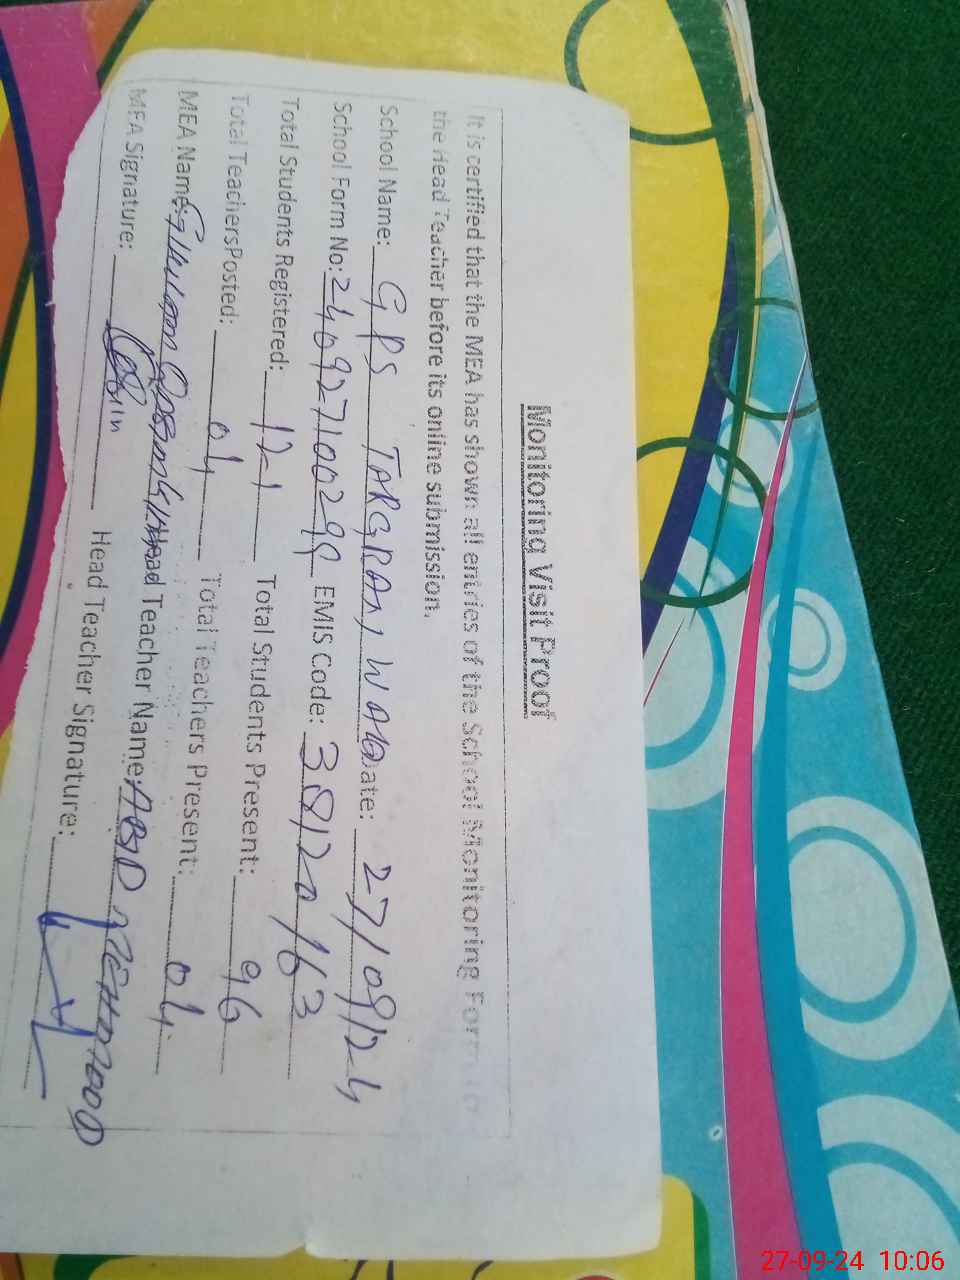 Monitoring Visit Proof
It is certified that the MEA has shown all entries of the School Monitoring Form to
the Head Teacher before its online submission.
School Name: GPS TARGRAN, WANA Date: 27/09/24
School Form No: 240927100299 EMIS Code: 38120163
Total Students Registered: 121 Total Students Present: 96
Total Teachers Posted: 04 Total Teachers Present: 04
MEA Name: Ghulam Head Teacher Name: ABID MEHMOOD
MEA Signature: Head Teacher Signature:
27-09-24 10:06